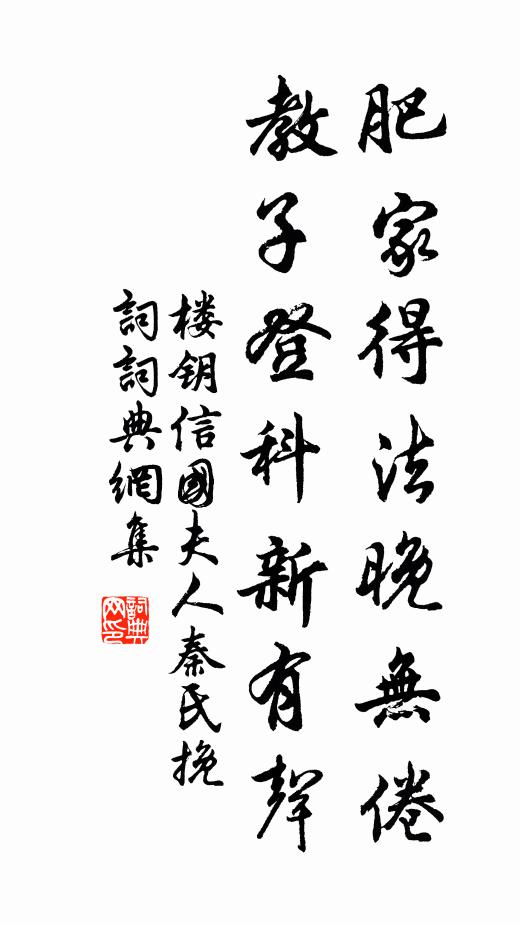 肥家得法晚無倦
教子登科新有聲
楼钥信國夫人秦氏挽
詞詞典網集
詞典网印